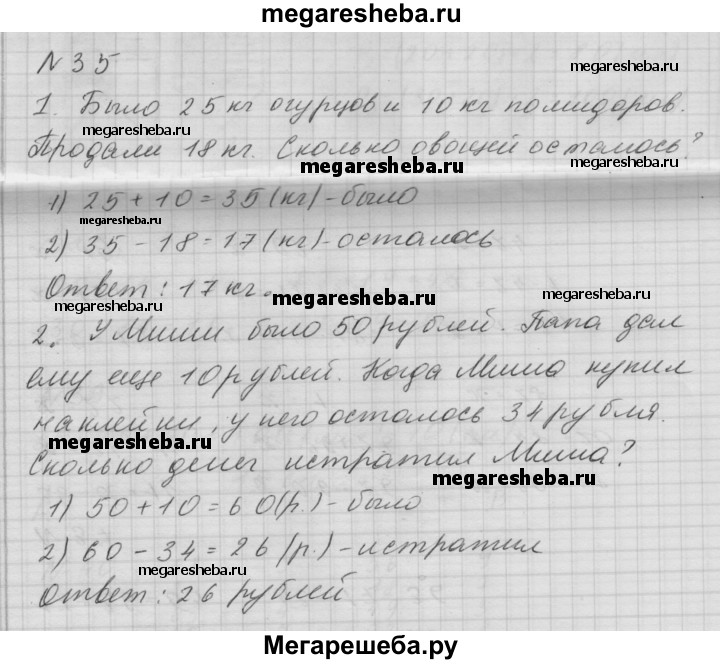 megaresheba.ru
N 35
megaresheba.ru
1. Было 25 кг огурцов и 10 кг помидоров.
megaresheba.ru
Продали 18 кг. Сколько овощей осталось?
megaresheba.ru
1) 25 + 10 = 35 (кг) - было
megaresheba.ru
2) 35 - 18 = 17 (кг) - осталось
Ответ: 17 кг.
megaresheba.ru
megaresheba.ru
2. У Миши было 50 рублей. Папа дал
megaresheba.ru
ему еще 10 рублей. Когда Миша купил
наклейки, у него осталось 34 рубля.
megaresheba.ru
Сколько денег истратил Миша?
megaresheba.ru
1) 50 + 10 = 60 (р.) - было
2) 60 - 34 = 26 (р.) - истратил
megaresheba.ru
Ответ: 26 рублей
megaresheba.ru
Мегарешеба.ру